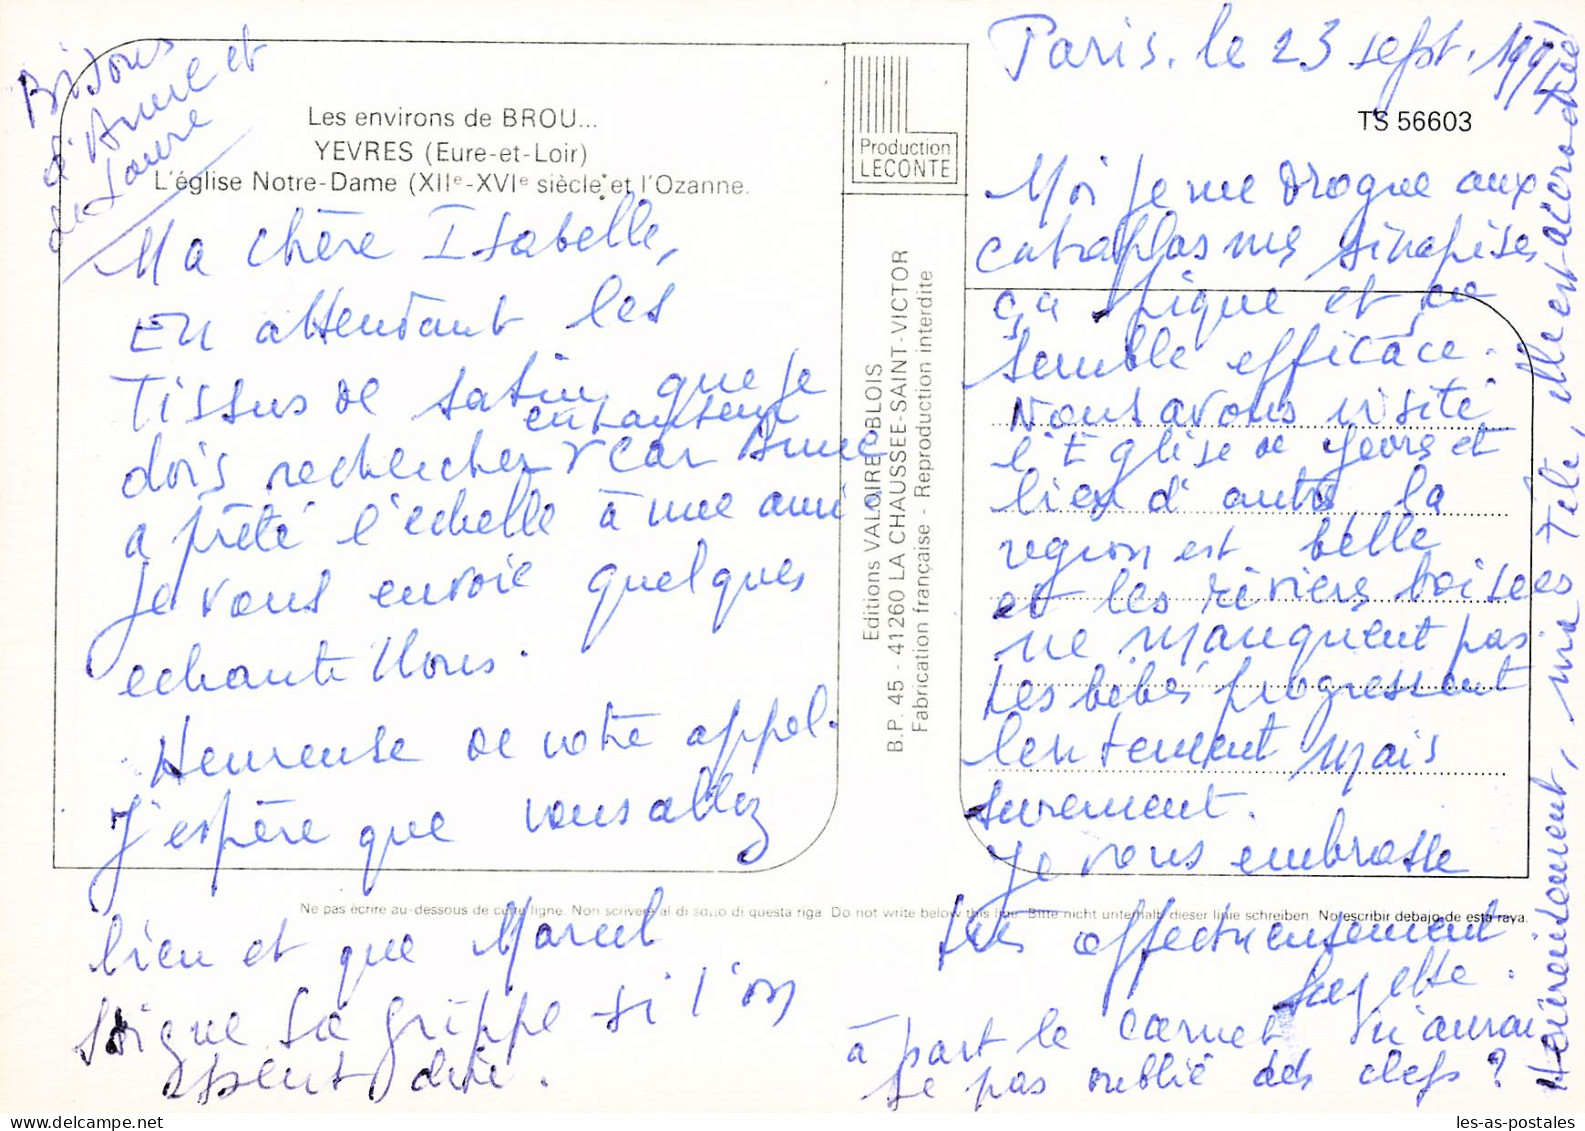 Bisous
d'Anne et
de Laure
Les environs de BROU...
YEVRES (Eure-et-Loir)
L'église Notre-Dame (XIIe-XVIe siècle) et l'Ozanne.
Ma chère Isabelle,
En attendant les
Tissus de satin que je
dois rechercher car Anne
a prêté l'echelle à une amie
Je vous envoie quelques
echantillons.
Heureuse de votre appel.
J'espère que vous allez
bien et que Marcel
soigne sa grippe si l'on
peut dire.
Production
LECONTE
Editions VALOIRE-BLOIS
B.P. 45 - 41260 LA CHAUSSEE-SAINT-VICTOR
Fabrication française - Reproduction interdite
Paris, le 23 sept. 1992
TS 56603
Moi je me drogue aux
cataplasmes sinapisés
ça pique et ça
semble efficace.
Nous avons visité
l'Eglise de Yevres et
bien d'autres la
region est belle
et les rivières boisées
ne manquent pas.
Les bébés progressent
lentement mais
surement.
Je vous embrasse
très affectueusement
Suzette.
à part le carnet n'aurai
je pas oublié des clefs ?
Heureusement, ma tête, elle est accrochée!
Ne pas écrire au-dessous de cette ligne. Non scrivere al di sotto di questa riga. Do not write below this line. Bitte nicht unterhalb dieser linie schreiben. No escribir debajo de esta raya.
les-as-postales - delcampe.net